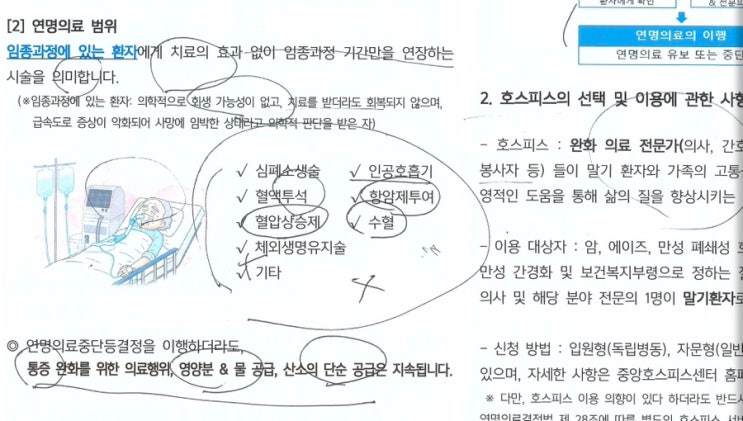 [2] 연명의료 범위
임종과정에 있는 환자에게 치료의 효과 없이 임종과정 기간만을 연장하는
시술을 의미합니다.
(※임종과정에 있는 환자: 의학적으로 회생 가능성이 없고, 치료를 받더라도 회복되지 않으며,
급속도로 증상이 악화되어 사망에 임박한 상태라고 의학적 판단을 받은 자)
√ 심폐소생술
√ 인공호흡기
√ 혈액투석
√ 항암제투여
√ 혈압상승제
√ 수혈
√ 체외생명유지술
√ 기타
◎ 연명의료중단등결정을 이행하더라도,
통증 완화를 위한 의료행위, 영양분 & 물 공급, 산소의 단순 공급은 지속됩니다.
환자에게 확인
& 전문의
연명의료의 이행
연명의료 유보 또는 중단
2. 호스피스의 선택 및 이용에 관한 사항
- 호스피스 : 완화 의료 전문가(의사, 간호
봉사자 등) 들이 말기 환자와 가족의 고통
영적인 도움을 통해 삶의 질을 향상시키는
- 이용 대상자 : 암, 에이즈, 만성 폐쇄성
만성 간경화 및 보건복지부령으로 정하는
의사 및 해당 분야 전문의 1명이 말기환자로
- 신청 방법 : 입원형(독립병동), 자문형(일반
있으며, 자세한 사항은 중앙호스피스센터 홈페
※ 다만, 호스피스 이용 의향이 있다 하더라도 반드시
연명의료결정법 제 28조에 따른 별도의 호스피스